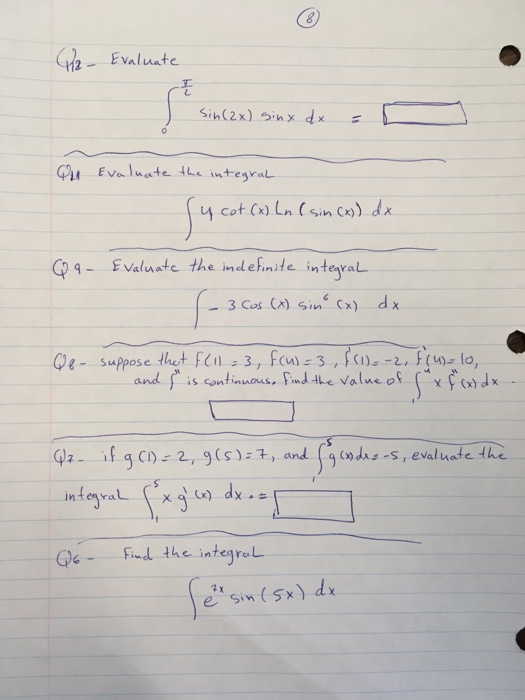 8
Q12 - Evaluate
∫₀^(π/2) sin(2x) sinx dx =
Q11 Evaluate the integral
∫ 4 cot(x) Ln(sin(x)) dx
Q9 - Evaluate the indefinite integral
∫ -3 cos(x) sin⁶(x) dx
Q8 - suppose that f(1) = 3, f(4) = 3, f'(1) = -2, f'(4) = 10,
and f'' is continuous. Find the value of ∫₁⁴ x f''(x) dx.
Q7 - if g(1) = 2, g(5) = 7, and ∫₁⁵ g(x) dx = -5, evaluate the
integral ∫₁⁵ x g'(x) dx. =
Q6 - Find the integral
∫ e^(7x) sin(5x) dx